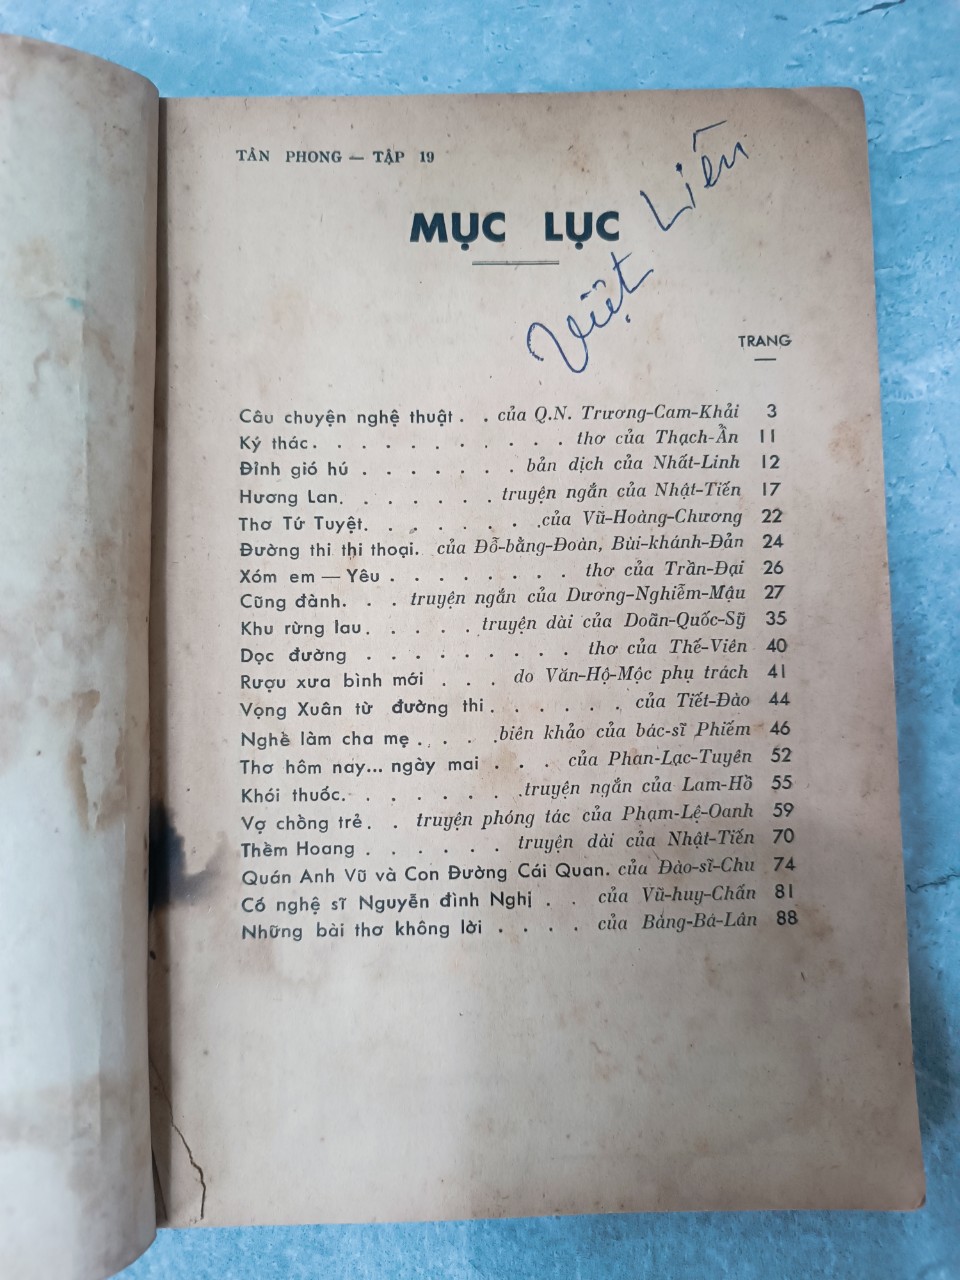 TÂN PHONG — TẬP 19
MỤC LỤC
Việt Liên
TRANG
Câu chuyện nghệ thuật . . của Q.N. Trương-Cam-Khải 3
Ký thác. . . . . . . . . . . thơ của Thạch-Ẩn 11
Đỉnh gió hú . . . . . . . bản dịch của Nhất-Linh 12
Hương Lan. . . . . . . truyện ngắn của Nhật-Tiến 17
Thơ Tứ Tuyệt. . . . . . . .của Vũ-Hoàng-Chương 22
Đường thi thị thoại. của Đỗ-bằng-Đoàn, Bùi-khánh-Đản 24
Xóm em — Yêu . . . . . . . . thơ của Trần-Đại 26
Cũng đành. . . truyện ngắn của Dương-Nghiễm-Mậu 27
Khu rừng lau. . . . . truyện dài của Doãn-Quốc-Sỹ 35
Dọc đường . . . . . . . . . thơ của Thế-Viên 40
Rượu xưa bình mới . . . do Văn-Hộ-Mộc phụ trách 41
Vọng Xuân từ đường thi . . . . . . của Tiết-Đào 44
Nghề làm cha mẹ . . . .biên khảo của bác-sĩ Phiếm 46
Thơ hôm nay... ngày mai . . . của Phan-Lạc-Tuyên 52
Khói thuốc. . . . . . . .truyện ngắn của Lam-Hồ 55
Vợ chồng trẻ . . truyện phóng tác của Phạm-Lệ-Oanh 59
Thềm Hoang . . . . . . truyện dài của Nhật-Tiến 70
Quán Anh Vũ và Con Đường Cái Quan. của Đào-sĩ-Chu 74
Cố nghệ sĩ Nguyễn đình Nghị . . của Vũ-huy-Chấn 81
Những bài thơ không lời . . . . của Bàng-Bá-Lân 88